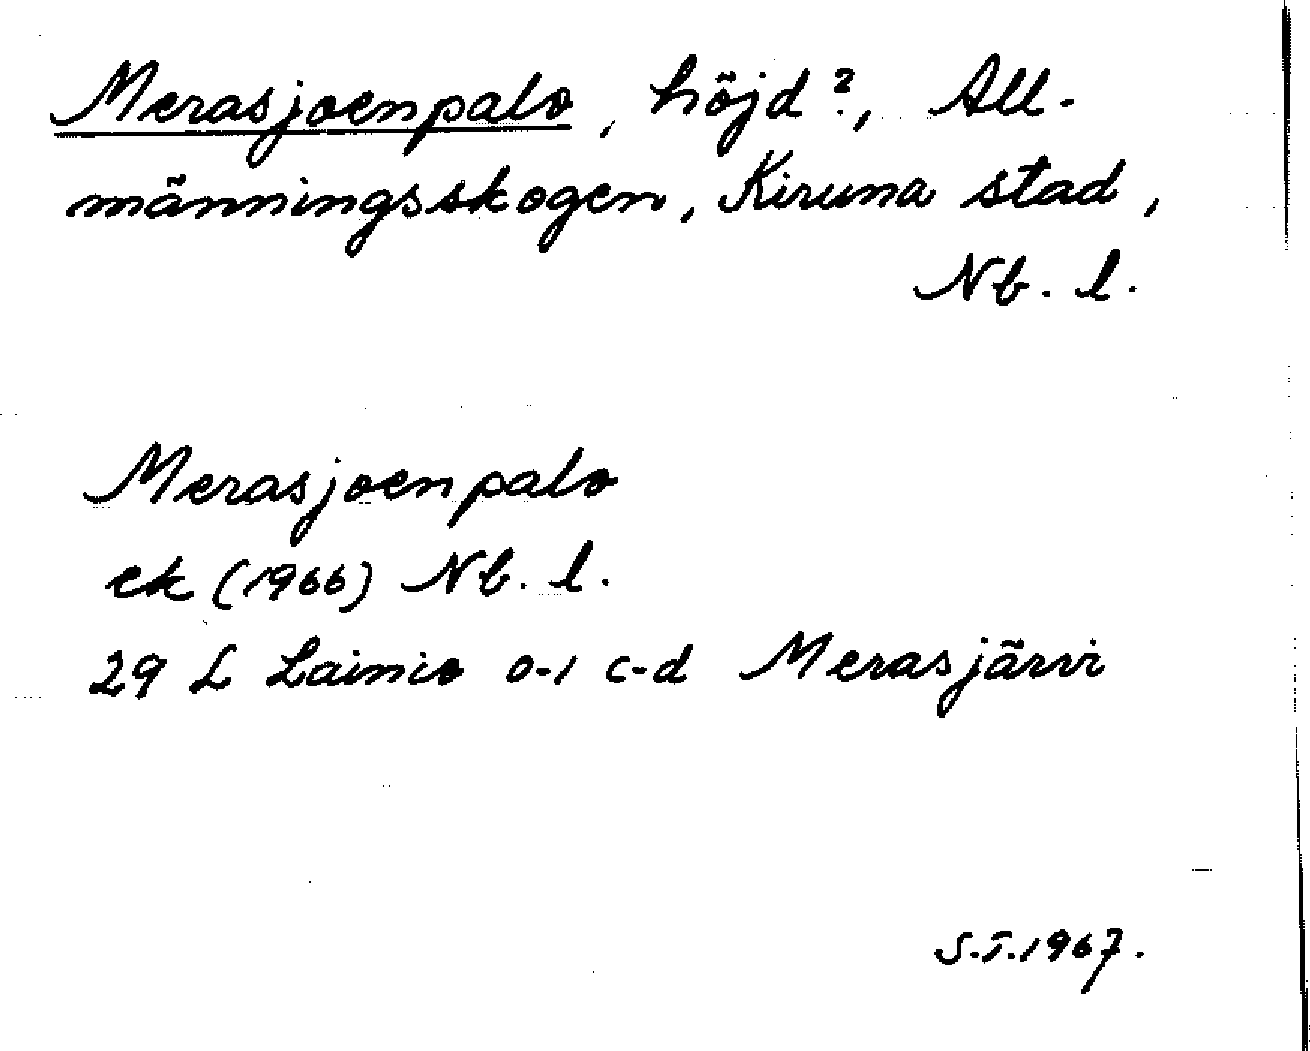 Merasjoenpalo, höjd?, All-
männingsskogen, Kiruna stad,
Nb. l.
Merasjoenpalo
ek (1966) Nb. l.
29 L Lainio 0-1 c-d Merasjärvi
S.T.1967.